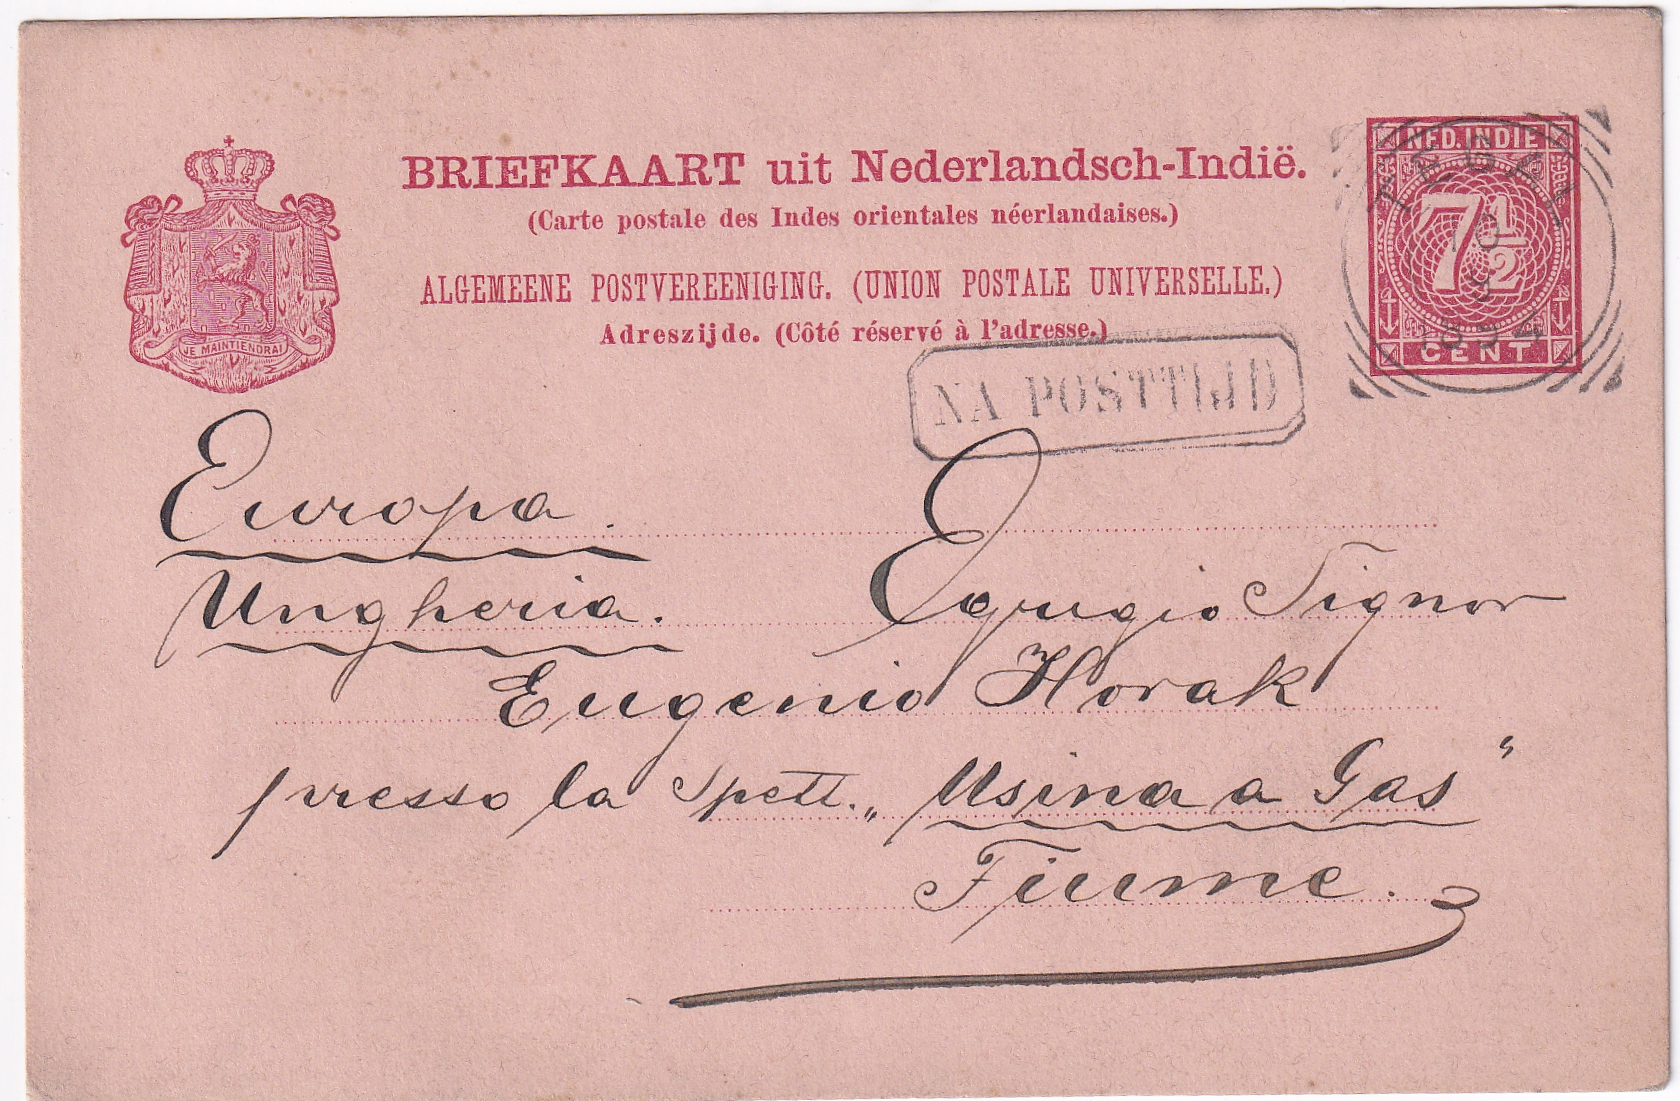 BRIEFKAART uit Nederlandsch-Indië.
(Carte postale des Indes orientales néerlandaises.)
ALGEMEENE POSTVEREENIGING. (UNION POSTALE UNIVERSELLE.)
Adreszijde. (Côté réservé à l'adresse.)
JE MAINTIENDRAI
NED. INDIE
7½
CENT
TEGAL
NA POSTTIJD
Europa.
Ungheria.
Egregio Signor
Eugenio Horak
presso la Spett. „Usina a Gas"
Fiume.